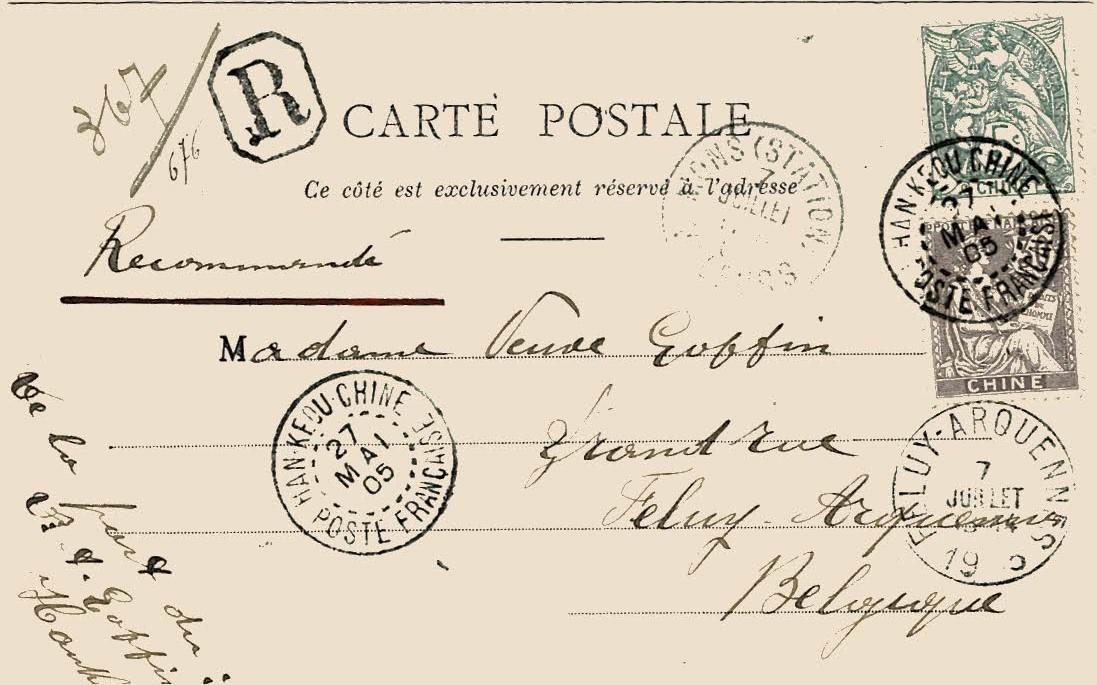 267
676
R
CARTE POSTALE
Ce côté est exclusivement réservé à l'adresse
Recommandé
Madame Veuve Goffin
Grand'rue
Feluy-Arquennes
Belgique
De la part du
Goffin
MONS (STATION)
7
JUILLET
5c
CHINE
HAN-KEOU CHINE
27
MAI
05
POSTE FRANÇAISE
CHINE
HAN-KEOU-CHINE
27
MAI
05
POSTE FRANÇAISE
FELUY-ARQUENNES
7
JUILLET
19 5